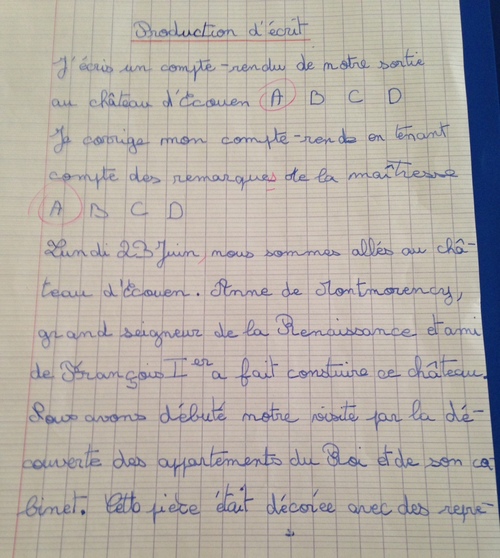 Production d'écrit
J'écris un compte-rendu de notre sortie
au château d'Ecouen A B C D
Je corrige mon compte-rendu en tenant
compte des remarques de la maîtresse
A B C D
Lundi 23 Juin, nous sommes allés au châ-
teau d'Ecouen. Anne de Montmorency,
grand seigneur de la Renaissance et ami
de François Ier a fait construire ce château.
Nous avons débuté notre visite par la dé-
couverte des appartements du Roi et de son ca-
binet. Cette pièce était décorée avec des repré-